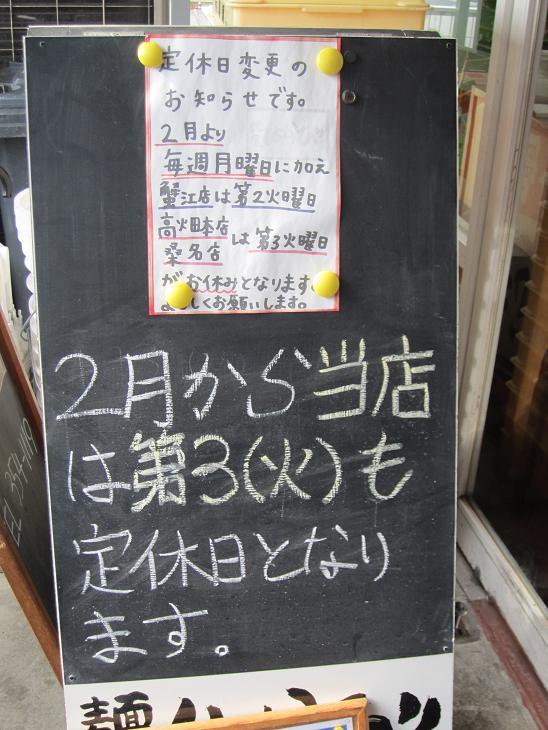 定休日変更の
お知らせです。
2月より
毎週月曜日に加え
蟹江店は第2火曜日
高畑本店
桑名店
は第3火曜日
がお休みとなります。
しくお願いします。
2月から当店
は第3(火)も
定休日となり
ます。
麺